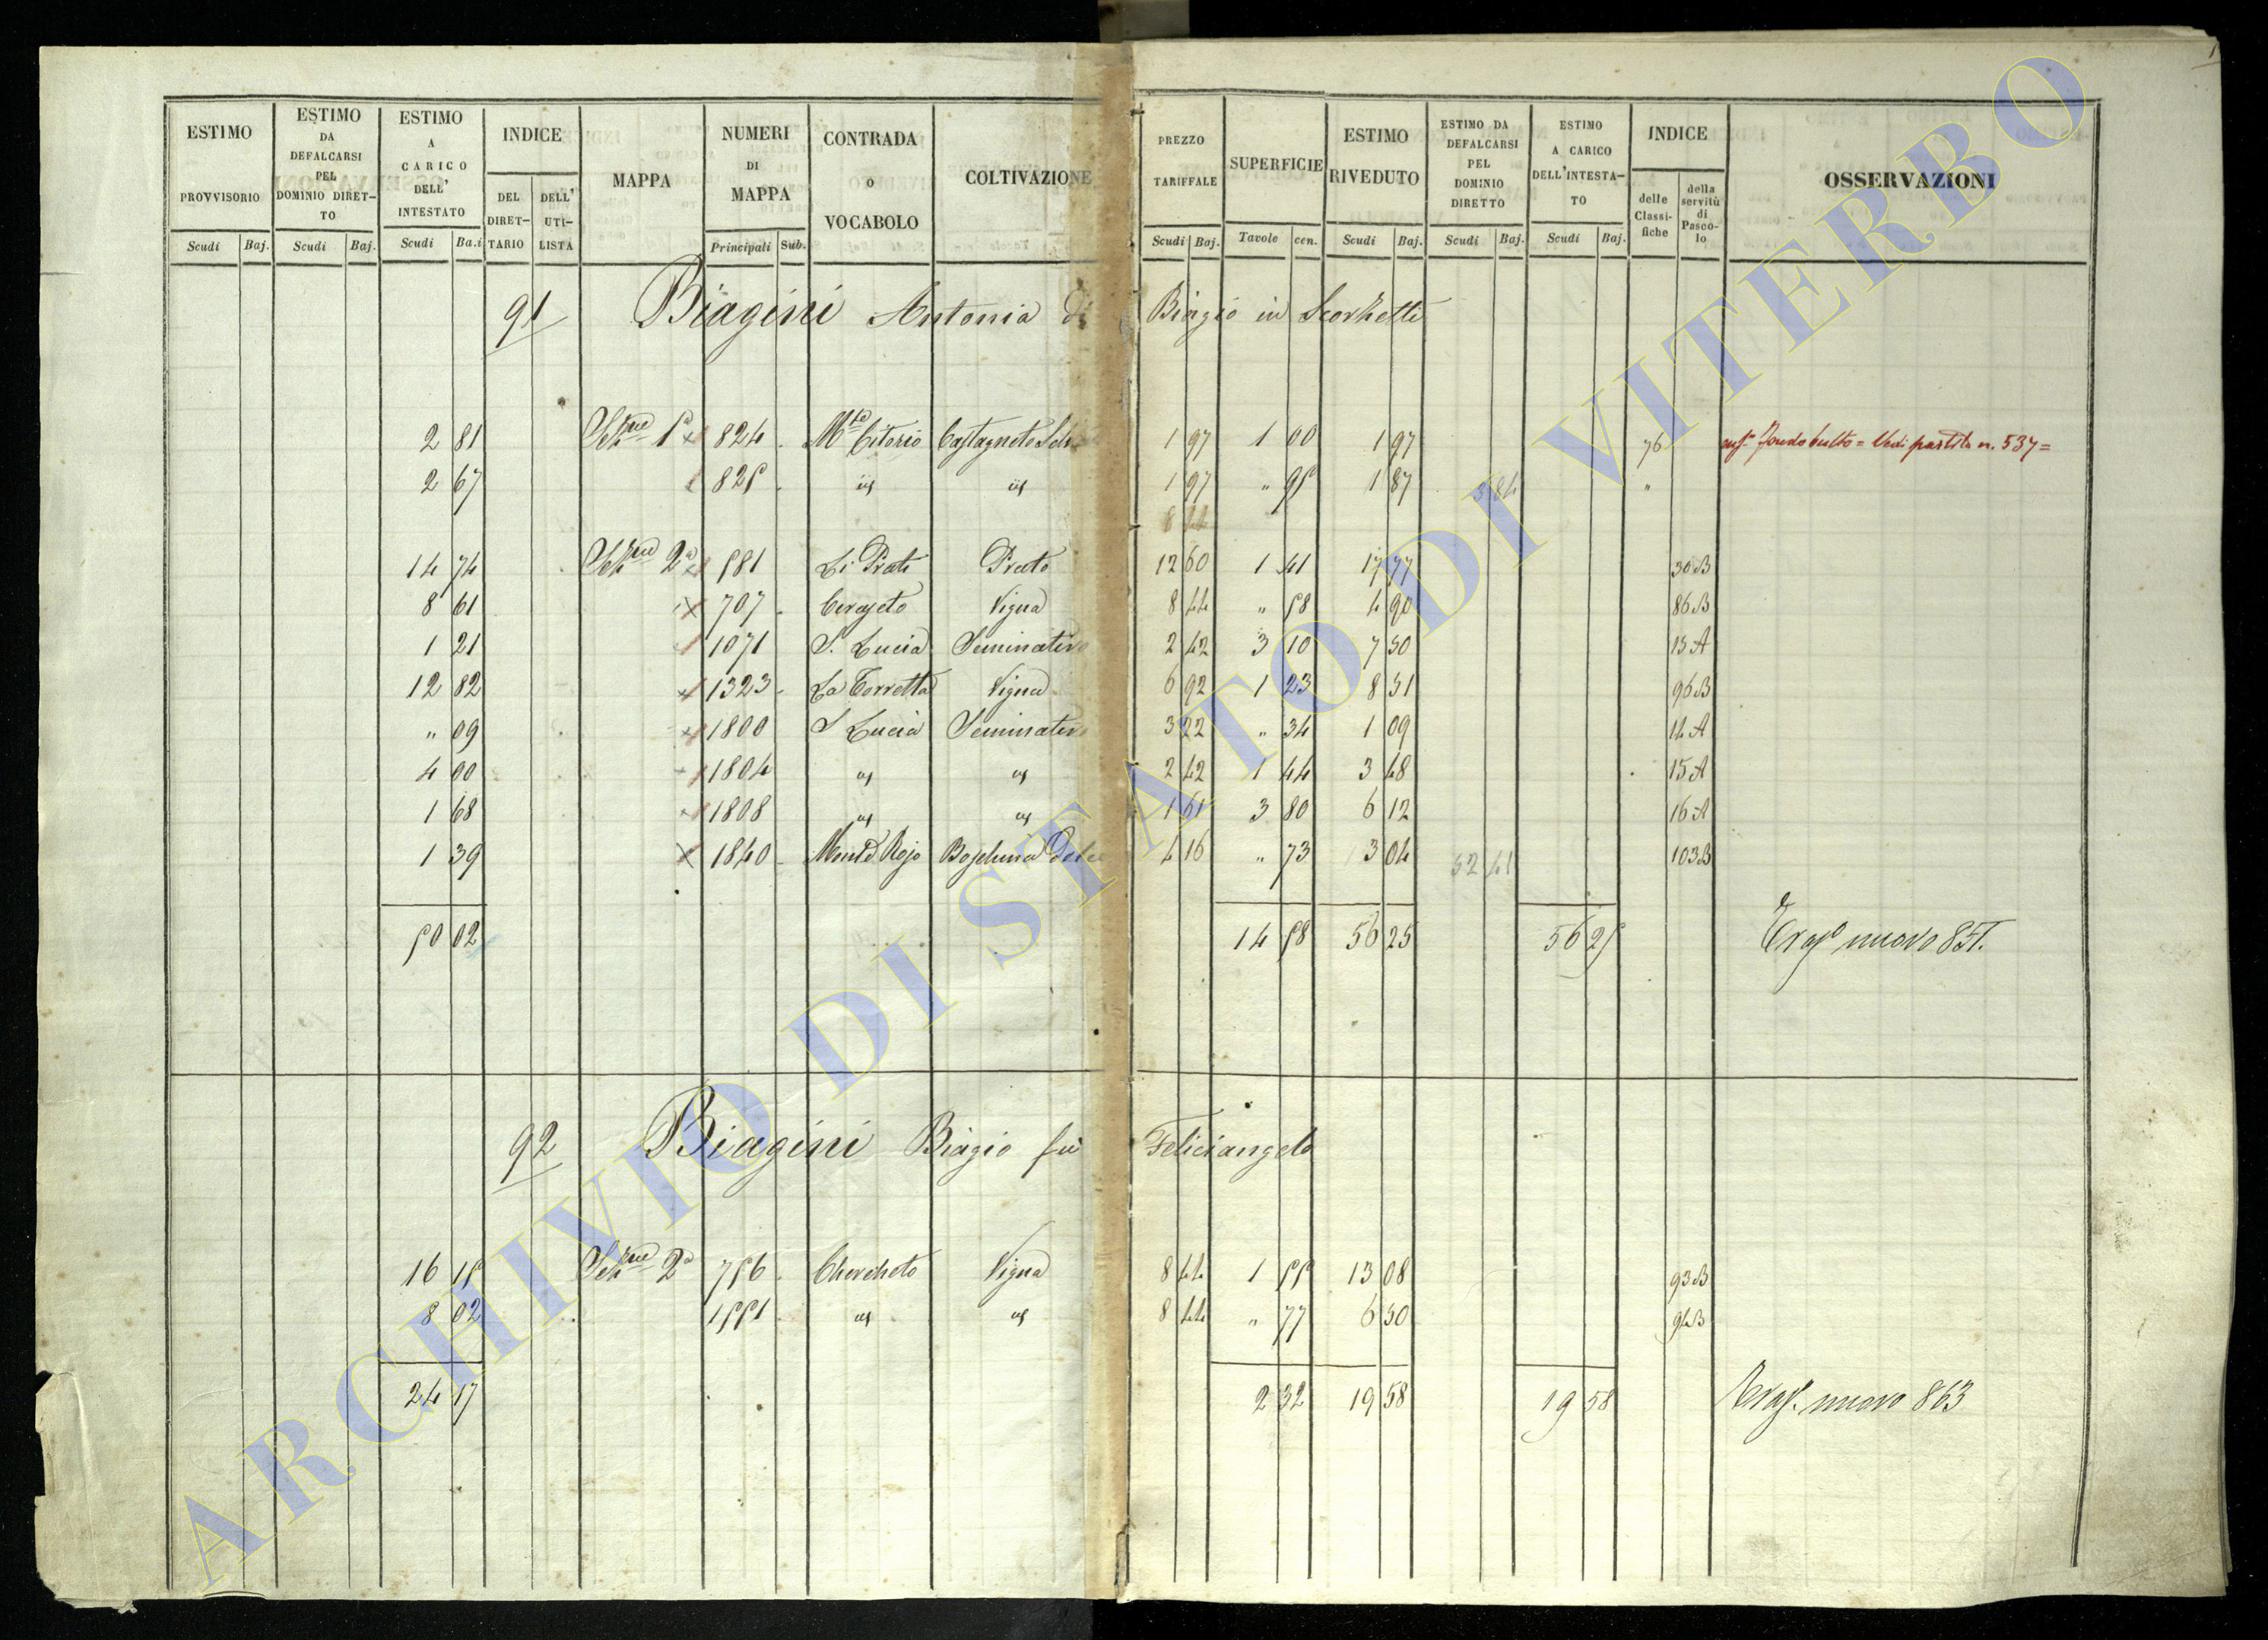 ESTIMO PROVVISORIO
Scudi Baj.
ESTIMO DA DEFALCARSI PEL DOMINIO DIRET-TO
Scudi Baj.
ESTIMO A CARICO DELL' INTESTATO
Scudi Ba.i
INDICE
DEL DIRET-TARIO
DELL' UTI-LISTA
MAPPA
NUMERI DI MAPPA
Principali Sub.
CONTRADA O VOCABOLO
COLTIVAZIONE
PREZZO TARIFFALE
Scudi Baj.
SUPERFICIE
Tavole cen.
ESTIMO RIVEDUTO
Scudi Baj.
ESTIMO DA DEFALCARSI PEL DOMINIO DIRETTO
Scudi Baj.
ESTIMO A CARICO DELL'INTESTA-TO
Scudi Baj.
INDICE
delle Classi-fiche
della servitù di Pasco-lo
OSSERVAZIONI
91 Biagini Antonia di Biagio in Scorhetti
2 81 Sez.ne 1a 824 M.te Citorio Castagneto 1 97 1 00 1 97 76 Fondo Culto = Vedi partita n. 537 =
2 67 825 id id 1 97 " 95 1 87 3 84 "
8 44
14 74 Sez.ne 2a 581 Li Prati Prato 12 60 1 41 17 77 30 B
8 61 707 Ceraseto Vigna 8 44 " 58 4 90 86 B
1 21 1071 S. Lucia Seminativo 2 42 3 10 7 50 15 A
12 82 1323 La Torretta Vigna 6 92 1 23 8 51 96 B
" 09 1800 S Lucia Seminativo 3 22 " 34 1 09 14 A
4 00 1804 id id 2 42 1 44 3 48 15 A
1 68 1808 id id 1 61 3 80 6 12 16 A
1 39 1840 Monte Rojo 4 16 " 73 3 04 52 41 103 B
50 02 14 58 56 25 56 25 nuovo 857.
92 Biagini Biagio fu Feliciangelo
16 15 Sez.ne 2a 756 Chercheto Vigna 8 44 1 55 13 08 93 B
8 02 1551 id id 8 44 " 77 6 50 94 B
24 17 2 32 19 58 19 58 nuovo 863
ARCHIVIO DI STATO DI VITERBO